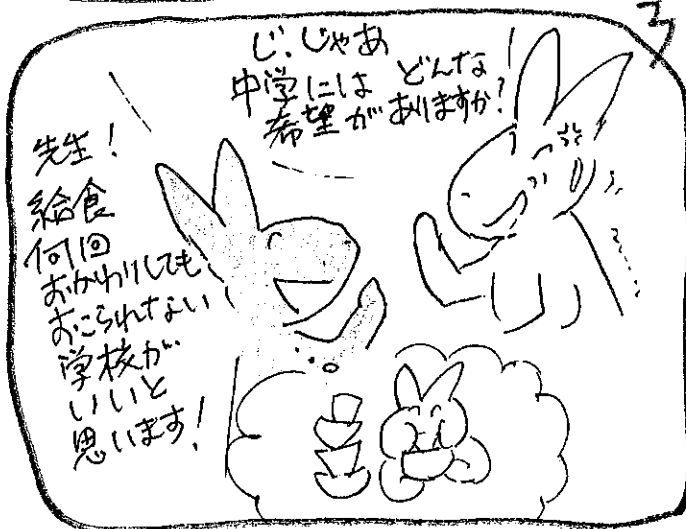 3
じ、じゃあ
中学には どんな
希望がありますか?
先生!
給食
何回
おかわりしても
おこられない
学校が
いいと
思います!